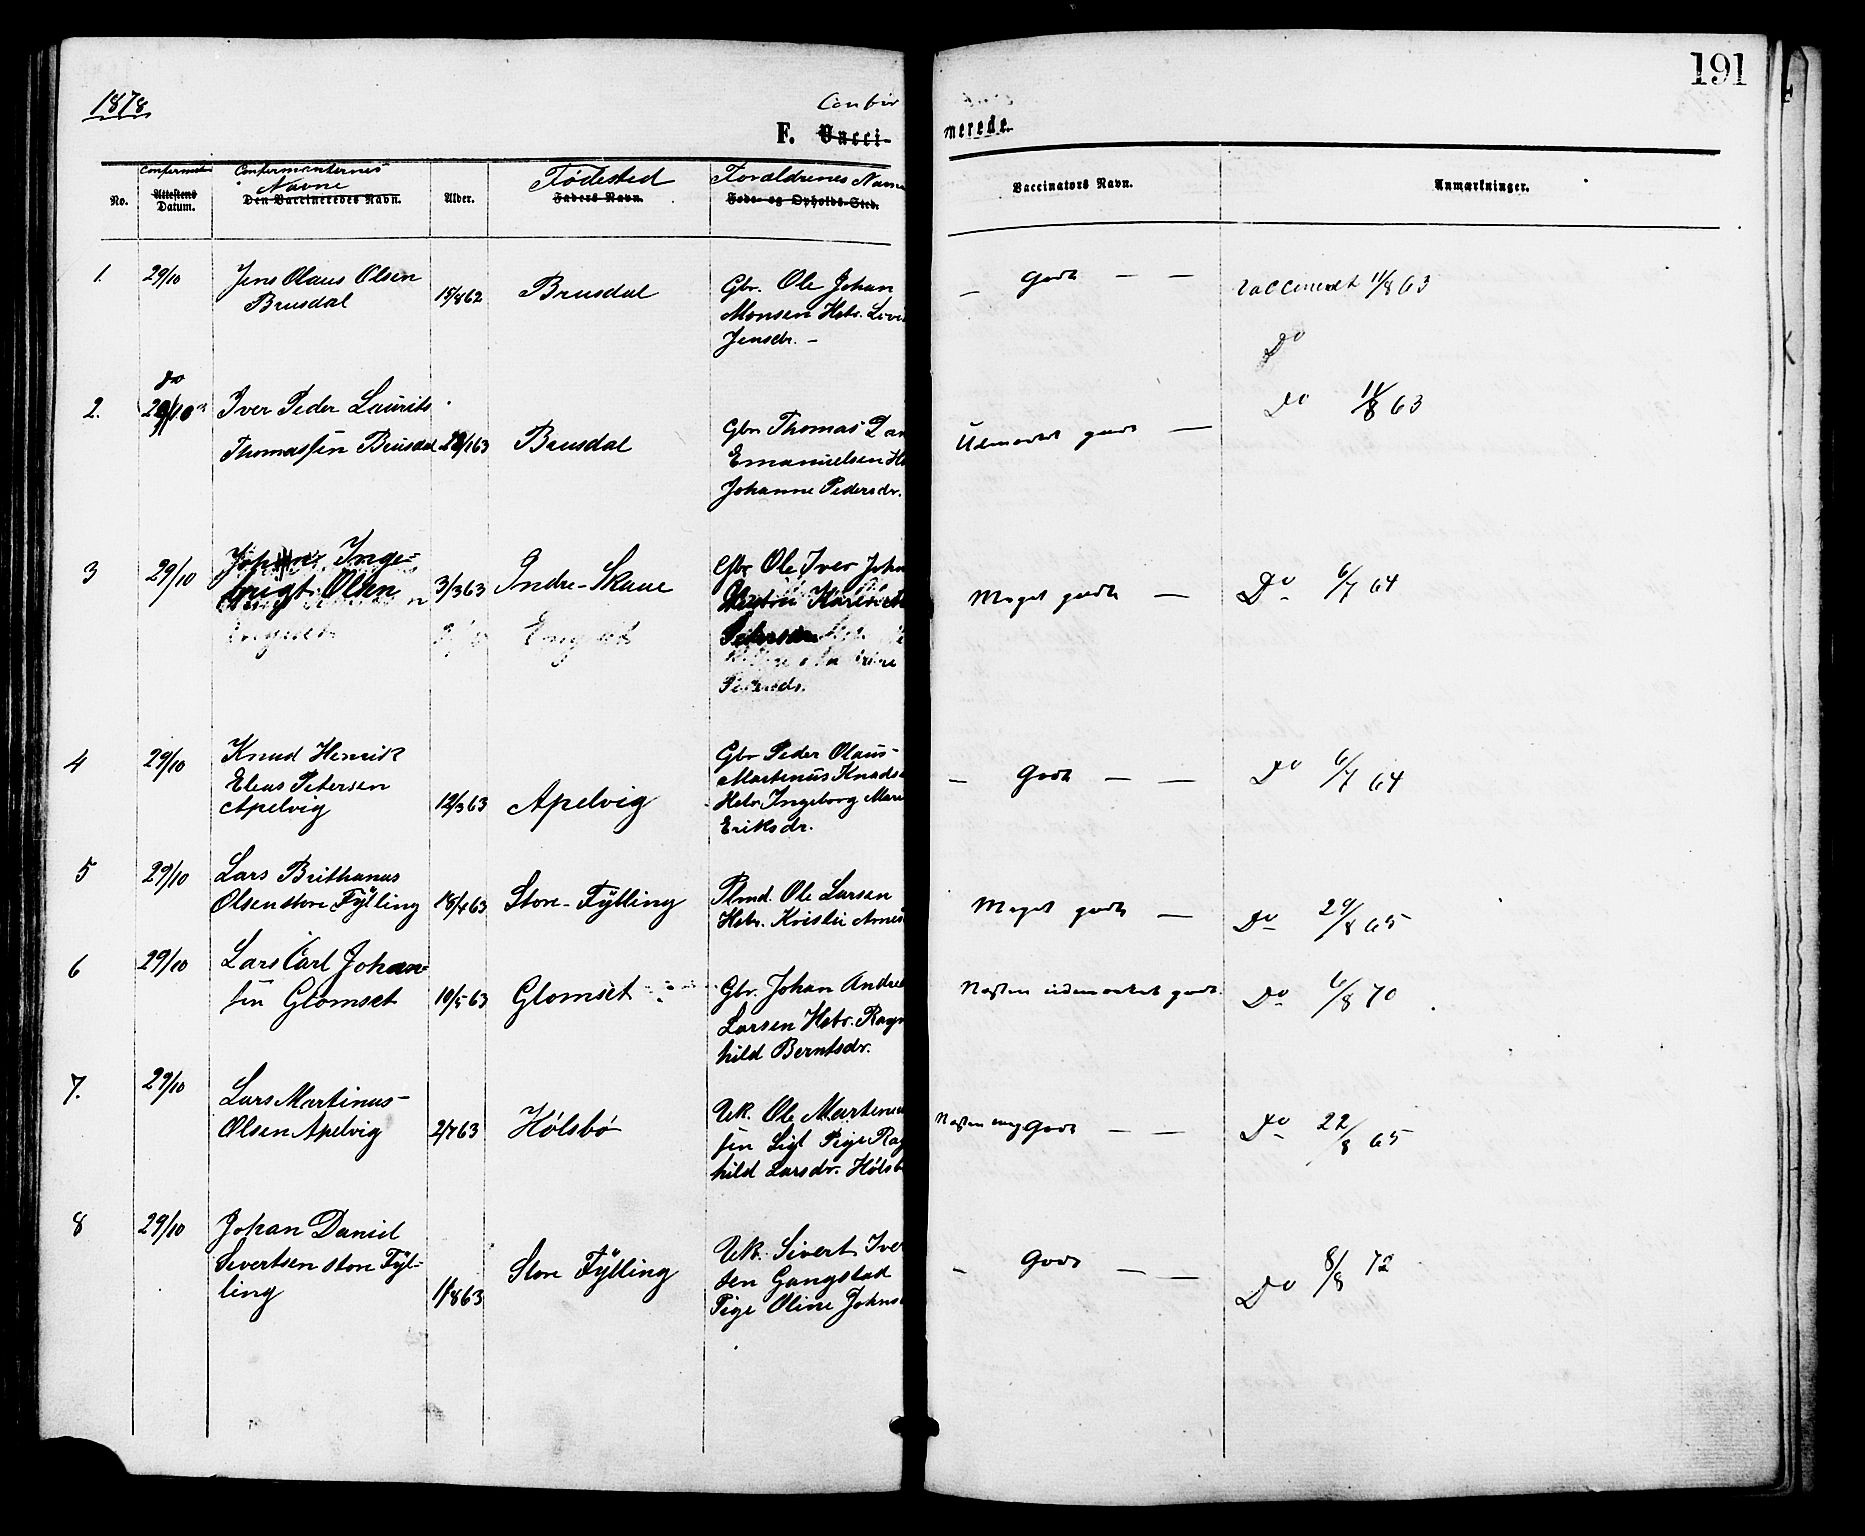 191
1878
Confir
F. Vacci-
merede.
No.
Confirmat
Attestens
Datum.
Confirmanternes
Navne
Den Vaccineredes Navn.
Alder.
Fødested
Faders Navn.
Forældrenes Navne
Føde- og Opholds-Sted.
Vaccinators Navn.
Anmærkninger.
1. 29/10 Jens Olaus Olsen
Brusdal 15/862 Brusdal
Gbr. Ole Johan
Monsen Hstr.
Jensdr. –
– Godt – –
vaccineret 11/8 63
Do
2. 29/10 Iver Peder Laurits
Thomassen Brusdal 163 Brusdal
Gbr Thomas
Emanuelsen
Johanne Pedersdr.
Udmærket godt –
Do 11/8 63
3 29/10 Inge-
brigt Olsen 3/363 Indre-Skaue
Gbr Ole Iver
Petersdr.
Meget godt –
Do 6/7 64
4 29/10 Knud Henrik
Elias Petersen
Apelvig 12/363 Apelvig
Gbr Peder Olaus-
Martinus Knuds
Hstr. Ingeborg Mari
Eriksdr.
– Godt – –
Do 6/7 64
5 29/10 Lars Brithanus
Olsen store Fylling 18/463 Store-Fylling
Plmd. Ole Larsen
Hstr. Kristi Arnes
Meget godt –
Do 29/8 65
6 29/10 Lars Carl Johan-
sen Glomset 10/563 Glomset
Gbr. Johan Andre
Larsen Hstr. Ragn
hild Berntsdr.
Næsten udmærket godt
Do 6/8 70
7. 29/10 Lars Martinus-
Olsen Apelvig 2/763 Hølsbø
Uk. Ole Martinus
sen Pige Rag
hild Larsdr. Hølsb
Næsten meg Godt – –
Do 22/8 65
8 29/10 Johan Daniel
Sivertsen store Fyl-
ling 1/863 Store Fylling
Uk. Sivert Iver
sen Gangstad
Pige Oline Johns
– Godt – –
Do 8/8 72